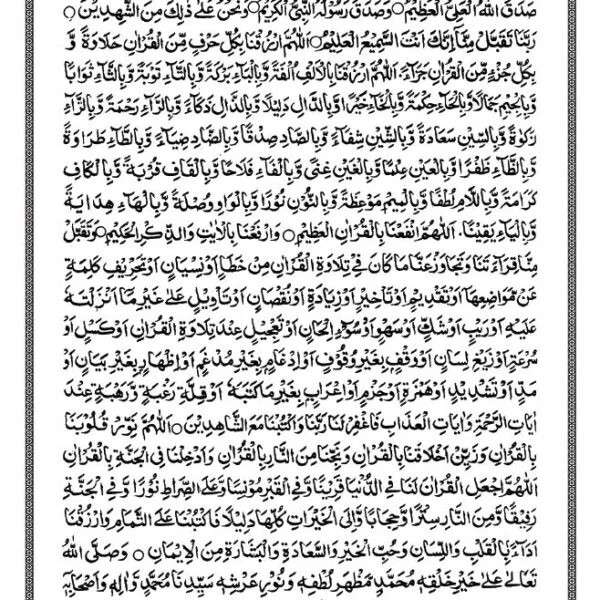 صَدَقَ اللهُ الْعَلِيُّ الْعَظِيْمُ ○ وَصَدَقَ رَسُوْلُهُ النَّبِيُّ الْكَرِيْمُ ○ وَنَحْنُ عَلٰى ذٰلِكَ مِنَ الشّٰهِدِيْنَ ○
رَبَّنَا تَقَبَّلْ مِنَّا اِنَّكَ اَنْتَ السَّمِيْعُ الْعَلِيْمُ ○ اَللّٰهُمَّ ارْزُقْنَا بِكُلِّ حَرْفٍ مِّنَ الْقُرْاٰنِ حَلَاوَةً وَّ
بِكُلِّ جُزْءٍ مِّنَ الْقُرْاٰنِ جَزَآءً. اَللّٰهُمَّ ارْزُقْنَا بِالْاَلِفِ اُلْفَةً وَّبِالْبَآءِ بَرَكَةً وَّبِالتَّآءِ تَوْبَةً وَّبِالثَّآءِ ثَوَابًا
وَّبِالْجِيْمِ جَمَالًا وَّبِالْحَآءِ حِكْمَةً وَّبِالْخَآءِ خَيْرًا وَّبِالدَّالِ دَلِيْلًا وَّبِالذَّالِ ذَكَآءً وَّبِالرَّآءِ رَحْمَةً وَّبِالزَّآءِ
زَكٰوةً وَّبِالسِّيْنِ سَعَادَةً وَّبِالشِّيْنِ شِفَآءً وَّبِالصَّادِ صِدْقًا وَّبِالضَّادِ ضِيَآءً وَّبِالطَّآءِ طَرَاوَةً
وَّبِالظَّآءِ ظَفْرًا وَّبِالْعَيْنِ عِلْمًا وَّبِالْغَيْنِ غِنًى وَّبِالْفَآءِ فَلَاحًا وَّبِالْقَافِ قُرْبَةً وَّبِالْكَافِ
كَرَامَةً وَّبِاللَّامِ لُطْفًا وَّبِالْمِيْمِ مَوْعِظَةً وَّبِالنُّوْنِ نُوْرًا وَّبِالْوَاوِ وُصْلَةً وَّبِالْهَآءِ هِدَايَةً
وَّبِالْيَآءِ يَقِيْنًا. اَللّٰهُمَّ انْفَعْنَا بِالْقُرْاٰنِ الْعَظِيْمِ ○ وَارْفَعْنَا بِالْاٰيٰتِ وَالذِّكْرِ الْحَكِيْمِ ○ وَتَقَبَّلْ
مِنَّا قِرَاءَتَنَا وَتَجَاوَزْ عَنَّا مَا كَانَ فِيْ تِلَاوَةِ الْقُرْاٰنِ مِنْ خَطَإٍ اَوْ نِسْيَانٍ اَوْ تَحْرِيْفِ كَلِمَةٍ
عَنْ مَّوَاضِعِهَا اَوْ تَقْدِيْمٍ اَوْ تَأْخِيْرٍ اَوْ زِيَادَةٍ اَوْ نُقْصَانٍ اَوْ تَأْوِيْلٍ عَلٰى غَيْرِ مَا اَنْزَلْتَهٗ
عَلَيْهِ اَوْ رَيْبٍ اَوْ شَكٍّ اَوْ سَهْوٍ اَوْ سُوْٓءِ اِلْحَانٍ اَوْ تَعْجِيْلٍ عِنْدَ تِلَاوَةِ الْقُرْاٰنِ اَوْ كَسَلٍ اَوْ
سُرْعَةٍ اَوْ زَيْغِ لِسَانٍ اَوْ وَقْفٍ بِغَيْرِ وُقُوْفٍ اَوْ اِدْغَامٍ بِغَيْرِ مُدْغَمٍ اَوْ اِظْهَارٍ بِغَيْرِ بَيَانٍ اَوْ
مَدٍّ اَوْ تَشْدِيْدٍ اَوْ هَمْزَةٍ اَوْ جَزْمٍ اَوْ اِعْرَابٍ بِغَيْرِ مَا كَتَبَهٗ اَوْ قِلَّةِ رَغْبَةٍ وَّرَهْبَةٍ عِنْدَ
اٰيَاتِ الرَّحْمَةِ وَاٰيَاتِ الْعَذَابِ فَاغْفِرْ لَنَا رَبَّنَا وَاكْتُبْنَا مَعَ الشَّاهِدِيْنَ ○ اَللّٰهُمَّ نَوِّرْ قُلُوْبَنَا
بِالْقُرْاٰنِ وَزَيِّنْ اَخْلَاقَنَا بِالْقُرْاٰنِ وَنَجِّنَا مِنَ النَّارِ بِالْقُرْاٰنِ وَاَدْخِلْنَا فِي الْجَنَّةِ بِالْقُرْاٰنِ
اَللّٰهُمَّ اجْعَلِ الْقُرْاٰنَ لَنَا فِي الدُّنْيَا قَرِيْنًا وَّفِي الْقَبْرِ مُوْنِسًا وَّعَلَى الصِّرَاطِ نُوْرًا وَّفِي الْجَنَّةِ
رَفِيْقًا وَّمِنَ النَّارِ سِتْرًا وَّحِجَابًا وَّاِلَى الْخَيْرَاتِ كُلِّهَا دَلِيْلًا فَاكْتُبْنَا عَلَى التَّمَامِ وَارْزُقْنَا
اَدَآءً بِالْقَلْبِ وَاللِّسَانِ وَحُبِّ الْخَيْرِ وَالسَّعَادَةِ وَالْبَشَارَةِ مِنَ الْاِيْمَانِ ○ وَصَلَّى اللهُ
تَعَالٰى عَلٰى خَيْرِ خَلْقِهٖ مُحَمَّدٍ مَّظْهَرِ لُطْفِهٖ وَنُوْرِ عَرْشِهٖ سَيِّدِنَا مُحَمَّدٍ وَّاٰلِهٖ وَاَصْحَابِهٖ